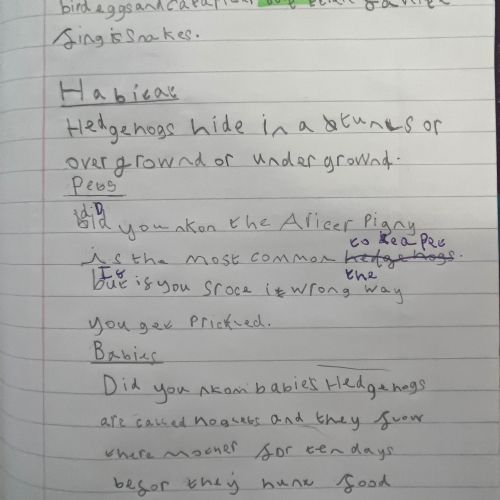 bird eggs and
fing is Snakes.
Habitat
Hedgehogs hide in a stunks or
over grownd or under grownd.
Pets
Did you nkon the Africer Pigny
is the most common to kea pet
but if you sroce it the wrong way
you get Prickued.
Babies
Did you nkom babies Hedgehogs
are called hoguets and they fuow
there mother for ten days
befor they hunt food